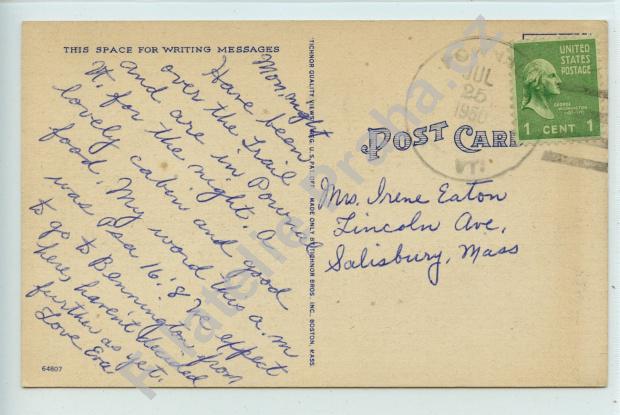 THIS SPACE FOR WRITING MESSAGES
Mon. night
Have been
over the Trail
and are in Pownal
Vt. for the night. A
lovely cabin and good
food. My word this a.m
was Psa 16:8 We expect
to go to Bennington from
here, haven't decided
further as yet.
Love Eva.
64807
TICHNOR QUALITY VIEWS, REG. U. S. PAT. OFF. MADE ONLY BY TICHNOR BROS. INC., BOSTON, MASS.
POST CARD
JUL
25
1950
VT.
UNITED
STATES
POSTAGE
GEORGE
WASHINGTON
1 CENT 1
Mrs. Irene Eaton
Lincoln Ave,
Salisbury, Mass
Filatelie Praha.cz